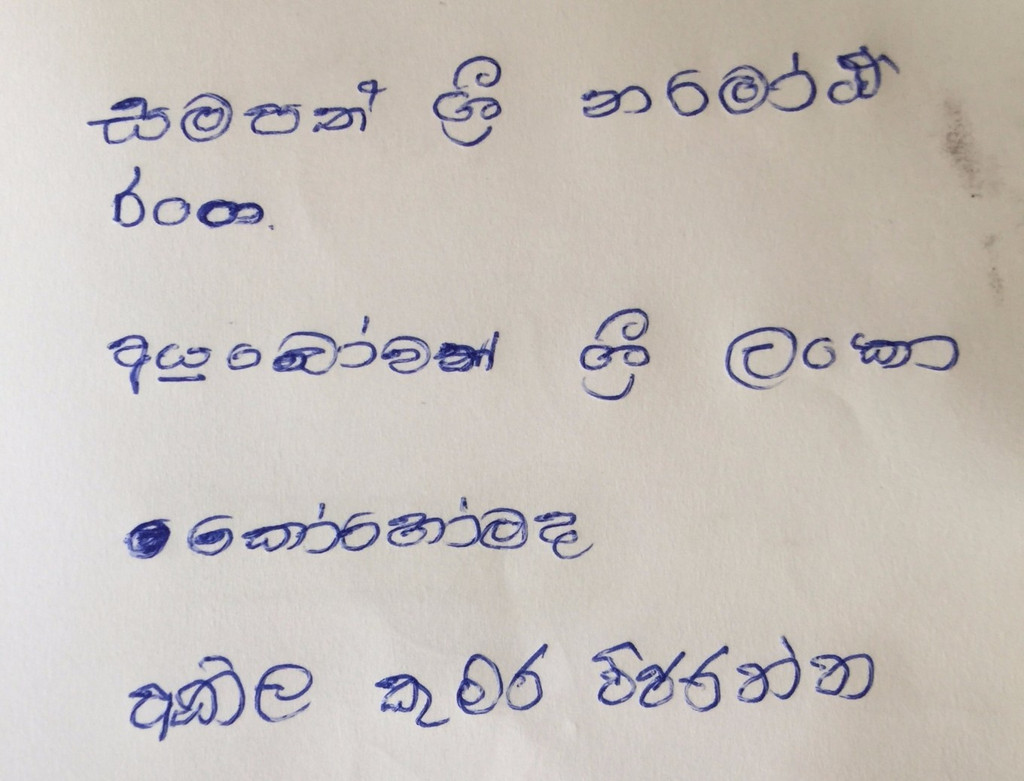 සමපත් ශ්‍රී
රංග.
අයුබෝවන් ශ්‍රී ලංකා
කෝහෝමද
අනිල කුමර විජරත්න